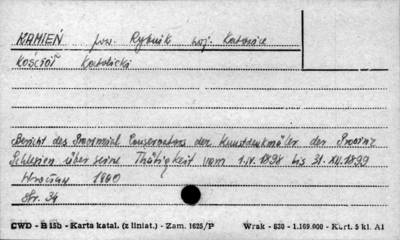 KAMIEŃ pow. Rybnik woj. Katowice
KOŚCIÓŁ Katolicki
Bericht des Provinzial Conservators der Kunstdenkmäler der Provinz
Schlesien über seine Thätigkeit vom 1.IV.1898 bis 31.XII.1899
Wrocław 1900
Str. 34
CWD - B 15b - Karta katal. (z liniat.) - Zam. 1625/P Wrak - 830 - 1.169.000 - Kart. 5 kl. A1